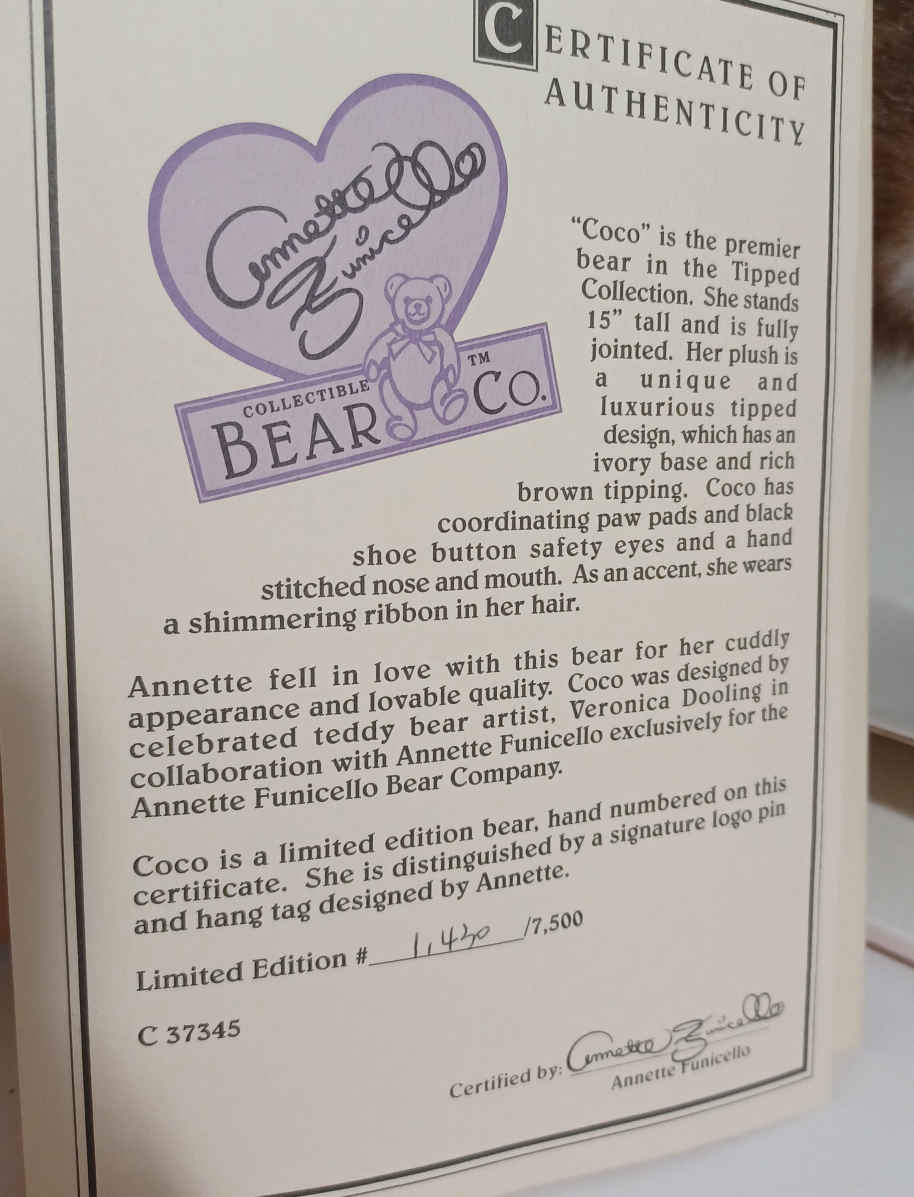 CERTIFICATE OF
AUTHENTICITY
Annette
Funicello
COLLECTIBLE
BEAR CO.™
“Coco” is the premier
bear in the Tipped
Collection. She stands
15” tall and is fully
jointed. Her plush is
a unique and
luxurious tipped
design, which has an
ivory base and rich
brown tipping. Coco has
coordinating paw pads and black
shoe button safety eyes and a hand
stitched nose and mouth. As an accent, she wears
a shimmering ribbon in her hair.
Annette fell in love with this bear for her cuddly
appearance and lovable quality. Coco was designed by
celebrated teddy bear artist, Veronica Dooling in
collaboration with Annette Funicello exclusively for the
Annette Funicello Bear Company.
Coco is a limited edition bear, hand numbered on this
certificate. She is distinguished by a signature logo pin
and hang tag designed by Annette.
Limited Edition # 1,430 /7,500
C 37345
Certified by: Annette Funicello
Annette Funicello